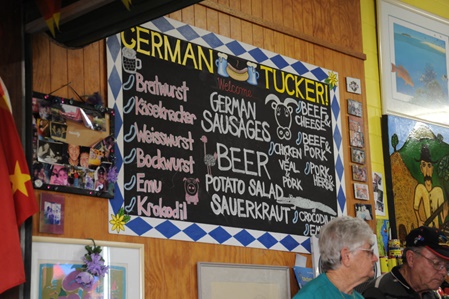 GERMAN TUCKER!
Welcome
Bratwurst
Käsekracker
Weisswurst
Bockwurst
Emu
Krokodil
GERMAN
SAUSAGES
BEER
POTATO SALAD
SAUERKRAUT
BEEF &
CHEESE
BEEF &
PORK
CHICKEN
VEAL
PORK
PORK
HERBS
CROCODILE
EMU